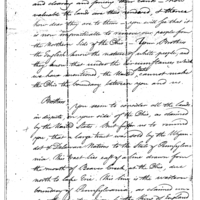 valuable the lands
how dear they are to them — you will see that it
is now impracticable to remove our people from the
Northern side of the Ohio — Your Brothers
the English know the nature of white people and
they know that under the circumstances which
we have mentioned, the United States cannot make
the Ohio the boundary between you and us
Brothers
You seem to consider all the Lands
in dispute, on your side of the Ohio, as claimed
by the United States. But suffer us to remind
you that a large tract was sold by the Wyan
dot & Delaware Nations to the State of Pennsylva
nia. This tract lies east of a line drawn from
the mouth of Beaver Creek at the Ohio, due
north to Lake Erie. This line is the western
boundary of Pennsylvania, as claimed un
King of England